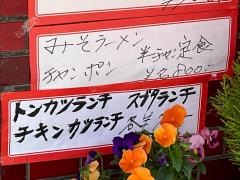 みそラーメン
チャンポン 半チャン定食
¥ 800
トンカツランチ スブタランチ
チキンカツランチ 各